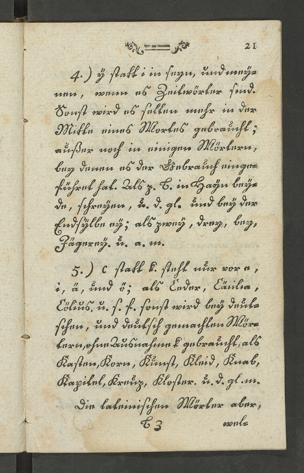 21
4.) ÿ statt i in seyn, und meye=
nen, wenn es Zeitwörter sind.
Sonst wird es selten mehr in der
Mitte eines Wortes gebraucht;
außer noch in einigen Wörtern,
bey denen es der Gebrauch einge=
führet hat. Als z. B. in Hayn bey=
de, schreyen, u. d. gl. und bey der
Endsylbe ey; als zwey, drey, bey,
Jägerey. u. a. m.
5.) C statt k. steht nur vor e,
i, ä, und ö; als Ceder, Cäcilia,
Cölius, u. s. f. sonst wird bey deut=
schen, und deutsch gemachten Wör=
tern, ohne Ausnahme k gebraucht, als
Kasten, Korn, Kunst, Kleid, Knab,
Kapitel, Kreuz, Kloster. u. d. gl. m.
Die lateinischen Wörter aber,
B 3 wel=